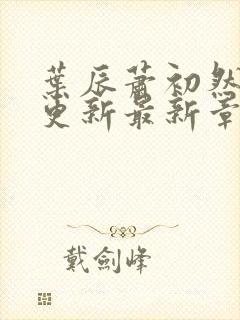 葉辰蕭初然
更新最新章
戴劍峰